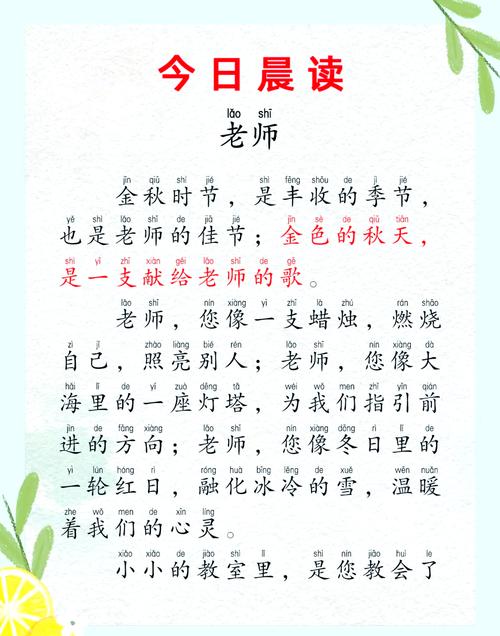 今日晨读
lǎo shī
老师
jīn qiū shí jié shì fēng shōu de jì jié
金秋时节，是丰收的季节，
yě shì lǎo shī de jiā jié jīn sè de qiū tiān
也是老师的佳节；金色的秋天，
shì yì zhī xiàn gěi lǎo shī de gē
是一支献给老师的歌。
lǎo shī nín xiàng yì zhī là zhú rán shāo
老师，您像一支蜡烛，燃烧
zì jǐ zhào liàng bié rén lǎo shī nín xiàng dà
自己，照亮别人；老师，您像大
hǎi lǐ de yí zuò dēng tǎ wèi wǒ men zhǐ yǐn qián
海里的一座灯塔，为我们指引前
jìn de fāng xiàng lǎo shī nín xiàng dōng rì lǐ de
进的方向；老师，您像冬日里的
yì lún hóng rì róng huà bīng lěng de xuě wēn nuǎn
一轮红日，融化冰冷的雪，温暖
zhe wǒ men de xīn líng
着我们的心灵。
xiǎo xiǎo de jiào shì lǐ shì nín jiāo huì le
小小的教室里，是您教会了